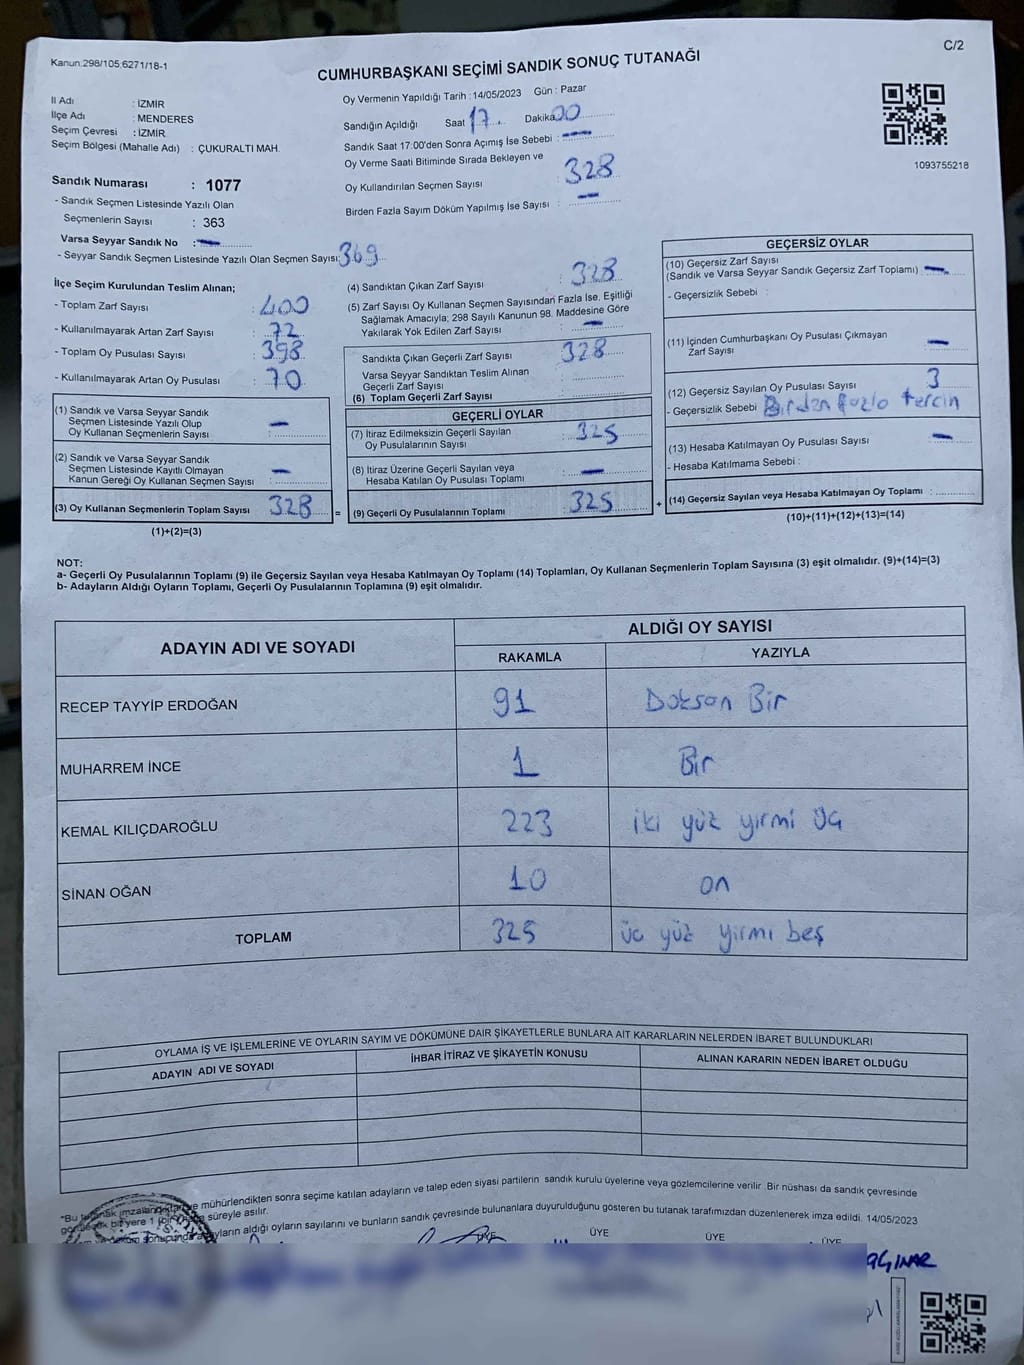 Kanun:298/105,6271/18-1
C/2
CUMHURBAŞKANI SEÇİMİ SANDIK SONUÇ TUTANAĞI
İl Adı : İZMİR
İlçe Adı : MENDERES
Seçim Çevresi : İZMİR
Seçim Bölgesi (Mahalle Adı) : ÇUKURALTI MAH.
Sandık Numarası : 1077
- Sandık Seçmen Listesinde Yazılı Olan
Seçmenlerin Sayısı : 363
Varsa Seyyar Sandık No : -
- Seyyar Sandık Seçmen Listesinde Yazılı Olan Seçmen Sayısı: 369
Oy Vermenin Yapıldığı Tarih :14/05/2023 Gün : Pazar
Sandığın Açıldığı Saat 17 Dakika 00
Sandık Saat 17:00'den Sonra Açımış İse Sebebi : -
Oy Verme Saati Bitiminde Sırada Bekleyen ve
Oy Kullandırılan Seçmen Sayısı : 328
Birden Fazla Sayım Döküm Yapılmış İse Sayısı : -
1093755218
İlçe Seçim Kurulundan Teslim Alınan;
- Toplam Zarf Sayısı : 400
- Kullanılmayarak Artan Zarf Sayısı : 72
- Toplam Oy Pusulası Sayısı : 398
- Kullanılmayarak Artan Oy Pusulası : 70
(1) Sandık ve Varsa Seyyar Sandık
Seçmen Listesinde Yazılı Olup
Oy Kullanan Seçmenlerin Sayısı : -
(2) Sandık ve Varsa Seyyar Sandık
Seçmen Listesinde Kayıtlı Olmayan
Kanun Gereği Oy Kullanan Seçmen Sayısı : -
(3) Oy Kullanan Seçmenlerin Toplam Sayısı 328 =
(1)+(2)=(3)
(4) Sandıktan Çıkan Zarf Sayısı : 328
(5) Zarf Sayısı Oy Kullanan Seçmen Sayısından Fazla İse, Eşitliği
Sağlamak Amacıyla; 298 Sayılı Kanunun 98. Maddesine Göre
Yakılarak Yok Edilen Zarf Sayısı : -
Sandıkta Çıkan Geçerli Zarf Sayısı : 328
Varsa Seyyar Sandıktan Teslim Alınan
Geçerli Zarf Sayısı :
(6) Toplam Geçerli Zarf Sayısı :
GEÇERLİ OYLAR
(7) İtiraz Edilmeksizin Geçerli Sayılan
Oy Pusulalarının Sayısı : 325
(8) İtiraz Üzerine Geçerli Sayılan veya
Hesaba Katılan Oy Pusulası Toplamı : -
(9) Geçerli Oy Pusulalarının Toplamı : 325 +
GEÇERSİZ OYLAR
(10) Geçersiz Zarf Sayısı
(Sandık ve Varsa Seyyar Sandık Geçersiz Zarf Toplamı) : -
- Geçersizlik Sebebi :
(11) İçinden Cumhurbaşkanı Oy Pusulası Çıkmayan
Zarf Sayısı : -
(12) Geçersiz Sayılan Oy Pusulası Sayısı : 3
- Geçersizlik Sebebi Birden fazla tercin
(13) Hesaba Katılmayan Oy Pusulası Sayısı : -
- Hesaba Katılmama Sebebi :
(14) Geçersiz Sayılan veya Hesaba Katılmayan Oy Toplamı :
(10)+(11)+(12)+(13)=(14)
NOT:
a- Geçerli Oy Pusulalarının Toplamı (9) ile Geçersiz Sayılan veya Hesaba Katılmayan Oy Toplamı (14) Toplamları, Oy Kullanan Seçmenlerin Toplam Sayısına (3) eşit olmalıdır. (9)+(14)=(3)
b- Adayların Aldığı Oyların Toplamı, Geçerli Oy Pusulalarının Toplamına (9) eşit olmalıdır.
ADAYIN ADI VE SOYADI
ALDIĞI OY SAYISI
RAKAMLA YAZIYLA
RECEP TAYYİP ERDOĞAN 91 Doksan Bir
MUHARREM İNCE 1 Bir
KEMAL KILIÇDAROĞLU 223 iki yüz yirmi üç
SİNAN OĞAN 10 on
TOPLAM 325 üç yüz yirmi beş
OYLAMA İŞ VE İŞLEMLERİNE VE OYLARIN SAYIM VE DÖKÜMÜNE DAİR ŞİKAYETLERLE BUNLARA AİT KARARLARIN NELERDEN İBARET BULUNDUKLARI
ADAYIN ADI VE SOYADI İHBAR İTİRAZ VE ŞİKAYETİN KONUSU ALINAN KARARIN NEDEN İBARET OLDUĞU
*Bu tutanak imzalandıktan ve mühürlendikten sonra seçime katılan adayların ve talep eden siyasi partilerin sandık kurulu üyelerine veya gözlemcilerine verilir .Bir nüshası da sandık çevresinde
bir yere 1 süreyle asılır.
sonucunda adayların aldığı oyların sayılarını ve bunların sandık çevresinde bulunanlara duyurulduğunu gösteren bu tutanak tarafımızdan düzenlenerek imza edildi. 14/05/2023
ÜYE ÜYE ÜYE ÜYE